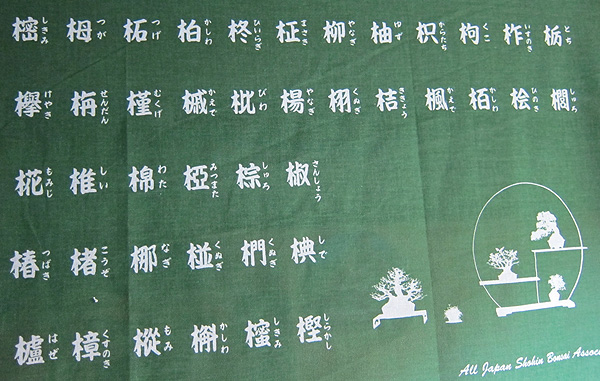 樒しきみ 栂つが 柘つげ 柏かしわ 柊ひいらぎ 柾まさき 柳やなぎ 柚ゆず 枳からたち 枸くこ 柞いすのき 栃とち
欅けやき 栴せんだん 槿むくげ 槭かえで 枇びわ 楊やなぎ 栩くぬぎ 桔ききょう 楓かえで 栢かしわ 桧ひのき 櫚しゅろ
椛もみじ 椎しい 棉わた 椏みつまた 棕しゅろ 椒さんしょう
椿つばき 楮こうぞ 梛なぎ 椪くぬぎ 椚くぬぎ 椣しで
櫨はぜ 樟くすのき 樅もみ 槲かしわ 櫁しきみ 樫しらかし
All Japan Shohin Bonsai Assoc